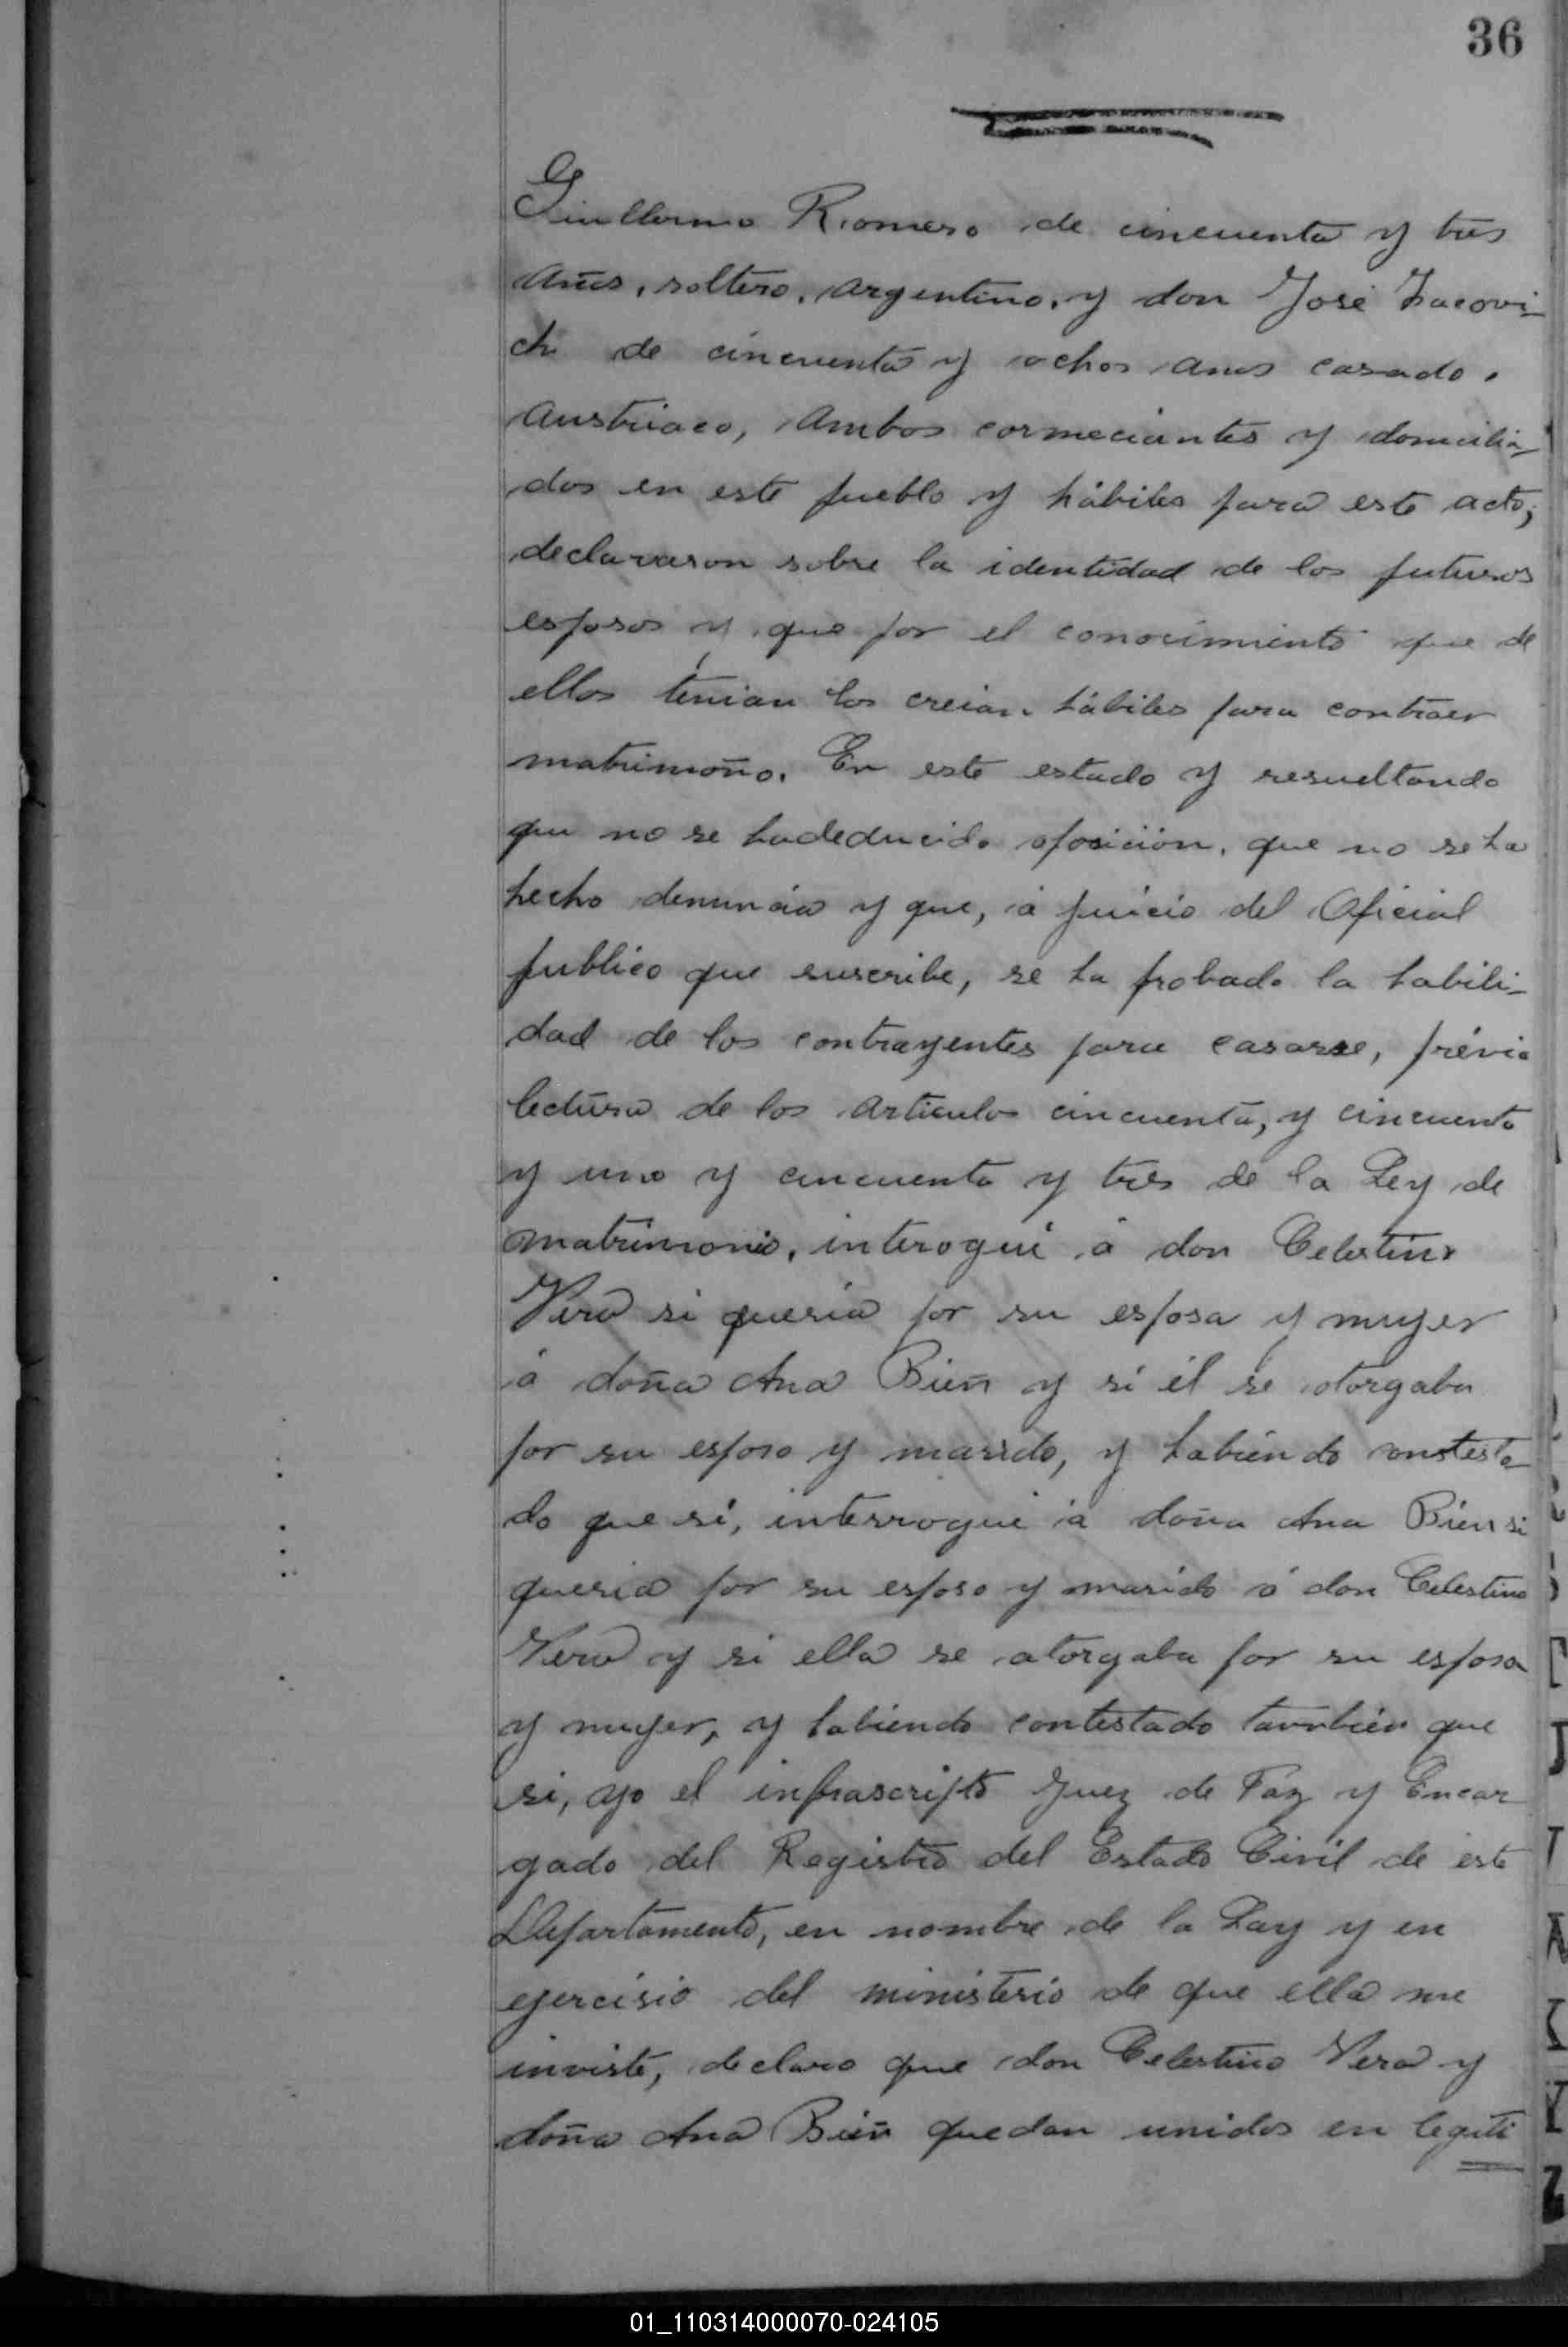 36
Guillermo Romero de cincuenta y tres
años, soltero, argentino, y don José Zacovi-
ch de cincuenta y ochos anos casado,
austriaco, ambos cormeciantes y domicilia-
dos en este pueblo y hábiles para este acto;
declararon sobre la identidad de los futuros
esposos y que por el conocimiento que de
ellos tenian los creian hábiles para contraer
matrimoño. En este estado y resueltando
que no se hadeducido oposición, que no se ha
hecho denuncia y que, á juicio del Oficial
publico que suscribe, se ha probado la habili-
dad de los contrayentes para casarse, prévia
lectura de los articulos cincuenta, y cincuenta
y uno y cincuenta y tres de la Ley de
matrimonio, interogué á don Celestino
Vera si queria por su esposa y mujer
á doña Ana Bieñ y si él se otorgaba
por su esposo y marido, y habiendo constesta
do que sí, interrogué á doña Ana Bien si
queria por su esposo y marido á don Celestino
Vera y si ella se atorgaba por su esposa
y mujer, y habiendo contestado también que
si, yo el infrascripto Juez de Paz y Encar
gado del Registro del Estado Civil de este
Departamento, en nombre de la Ley y en
ejercisio del ministerio de que ella me
inviste, declaro que don Celestino Vera y
doña Ana Bieñ quedan unidos en legiti
01_110314000070-024105